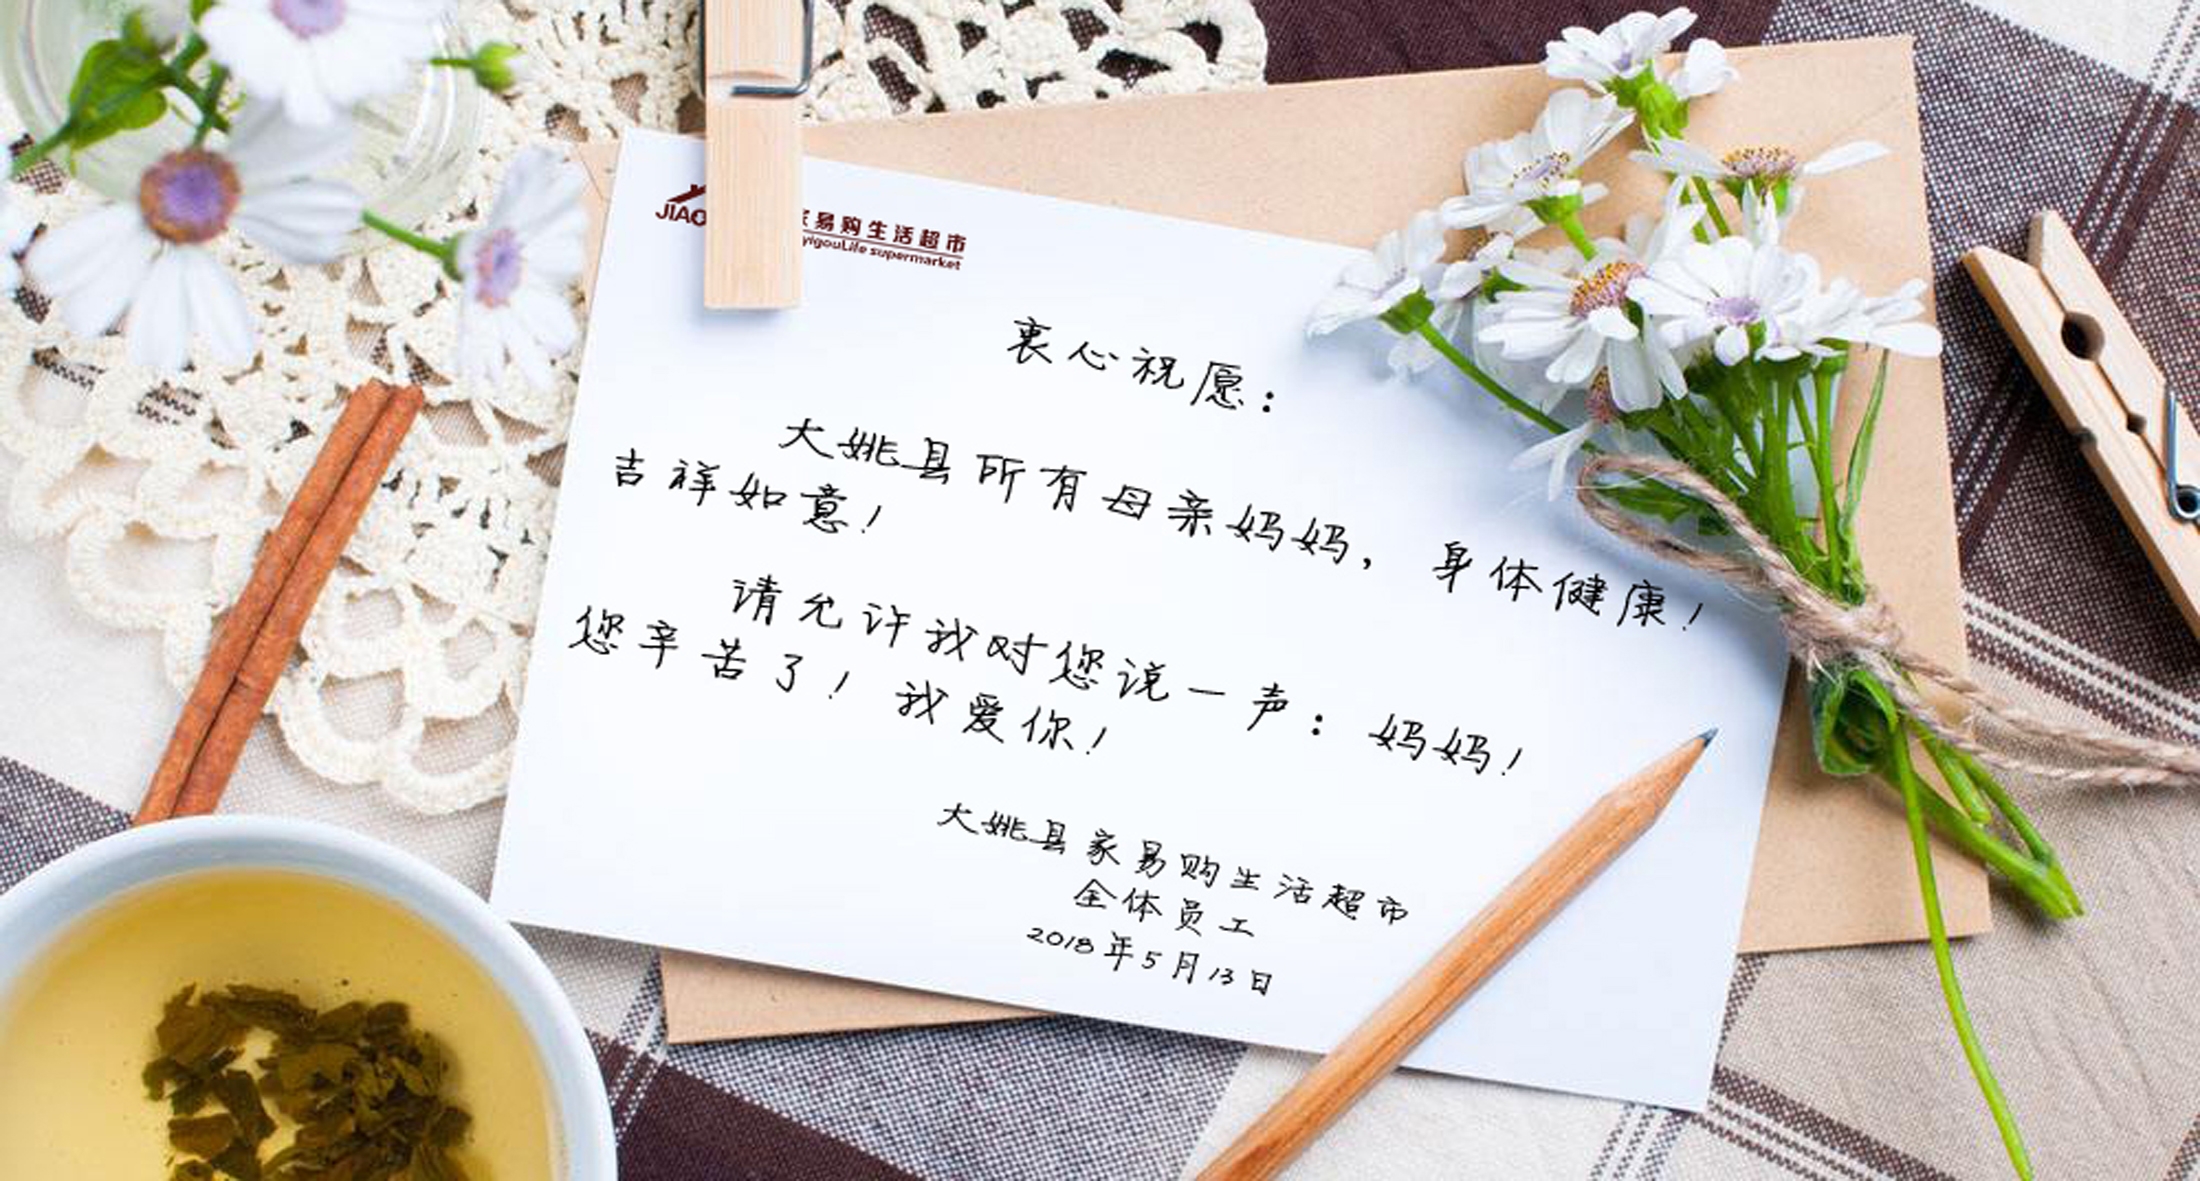 JIAO
家易购生活超市
yigouLife supermarket
衷心祝愿：
大姚县所有母亲妈妈，身体健康！
吉祥如意！
请允许我对您说一声：妈妈！
您辛苦了！我爱你！
大姚县家易购生活超市
全体员工
2018年5月13日